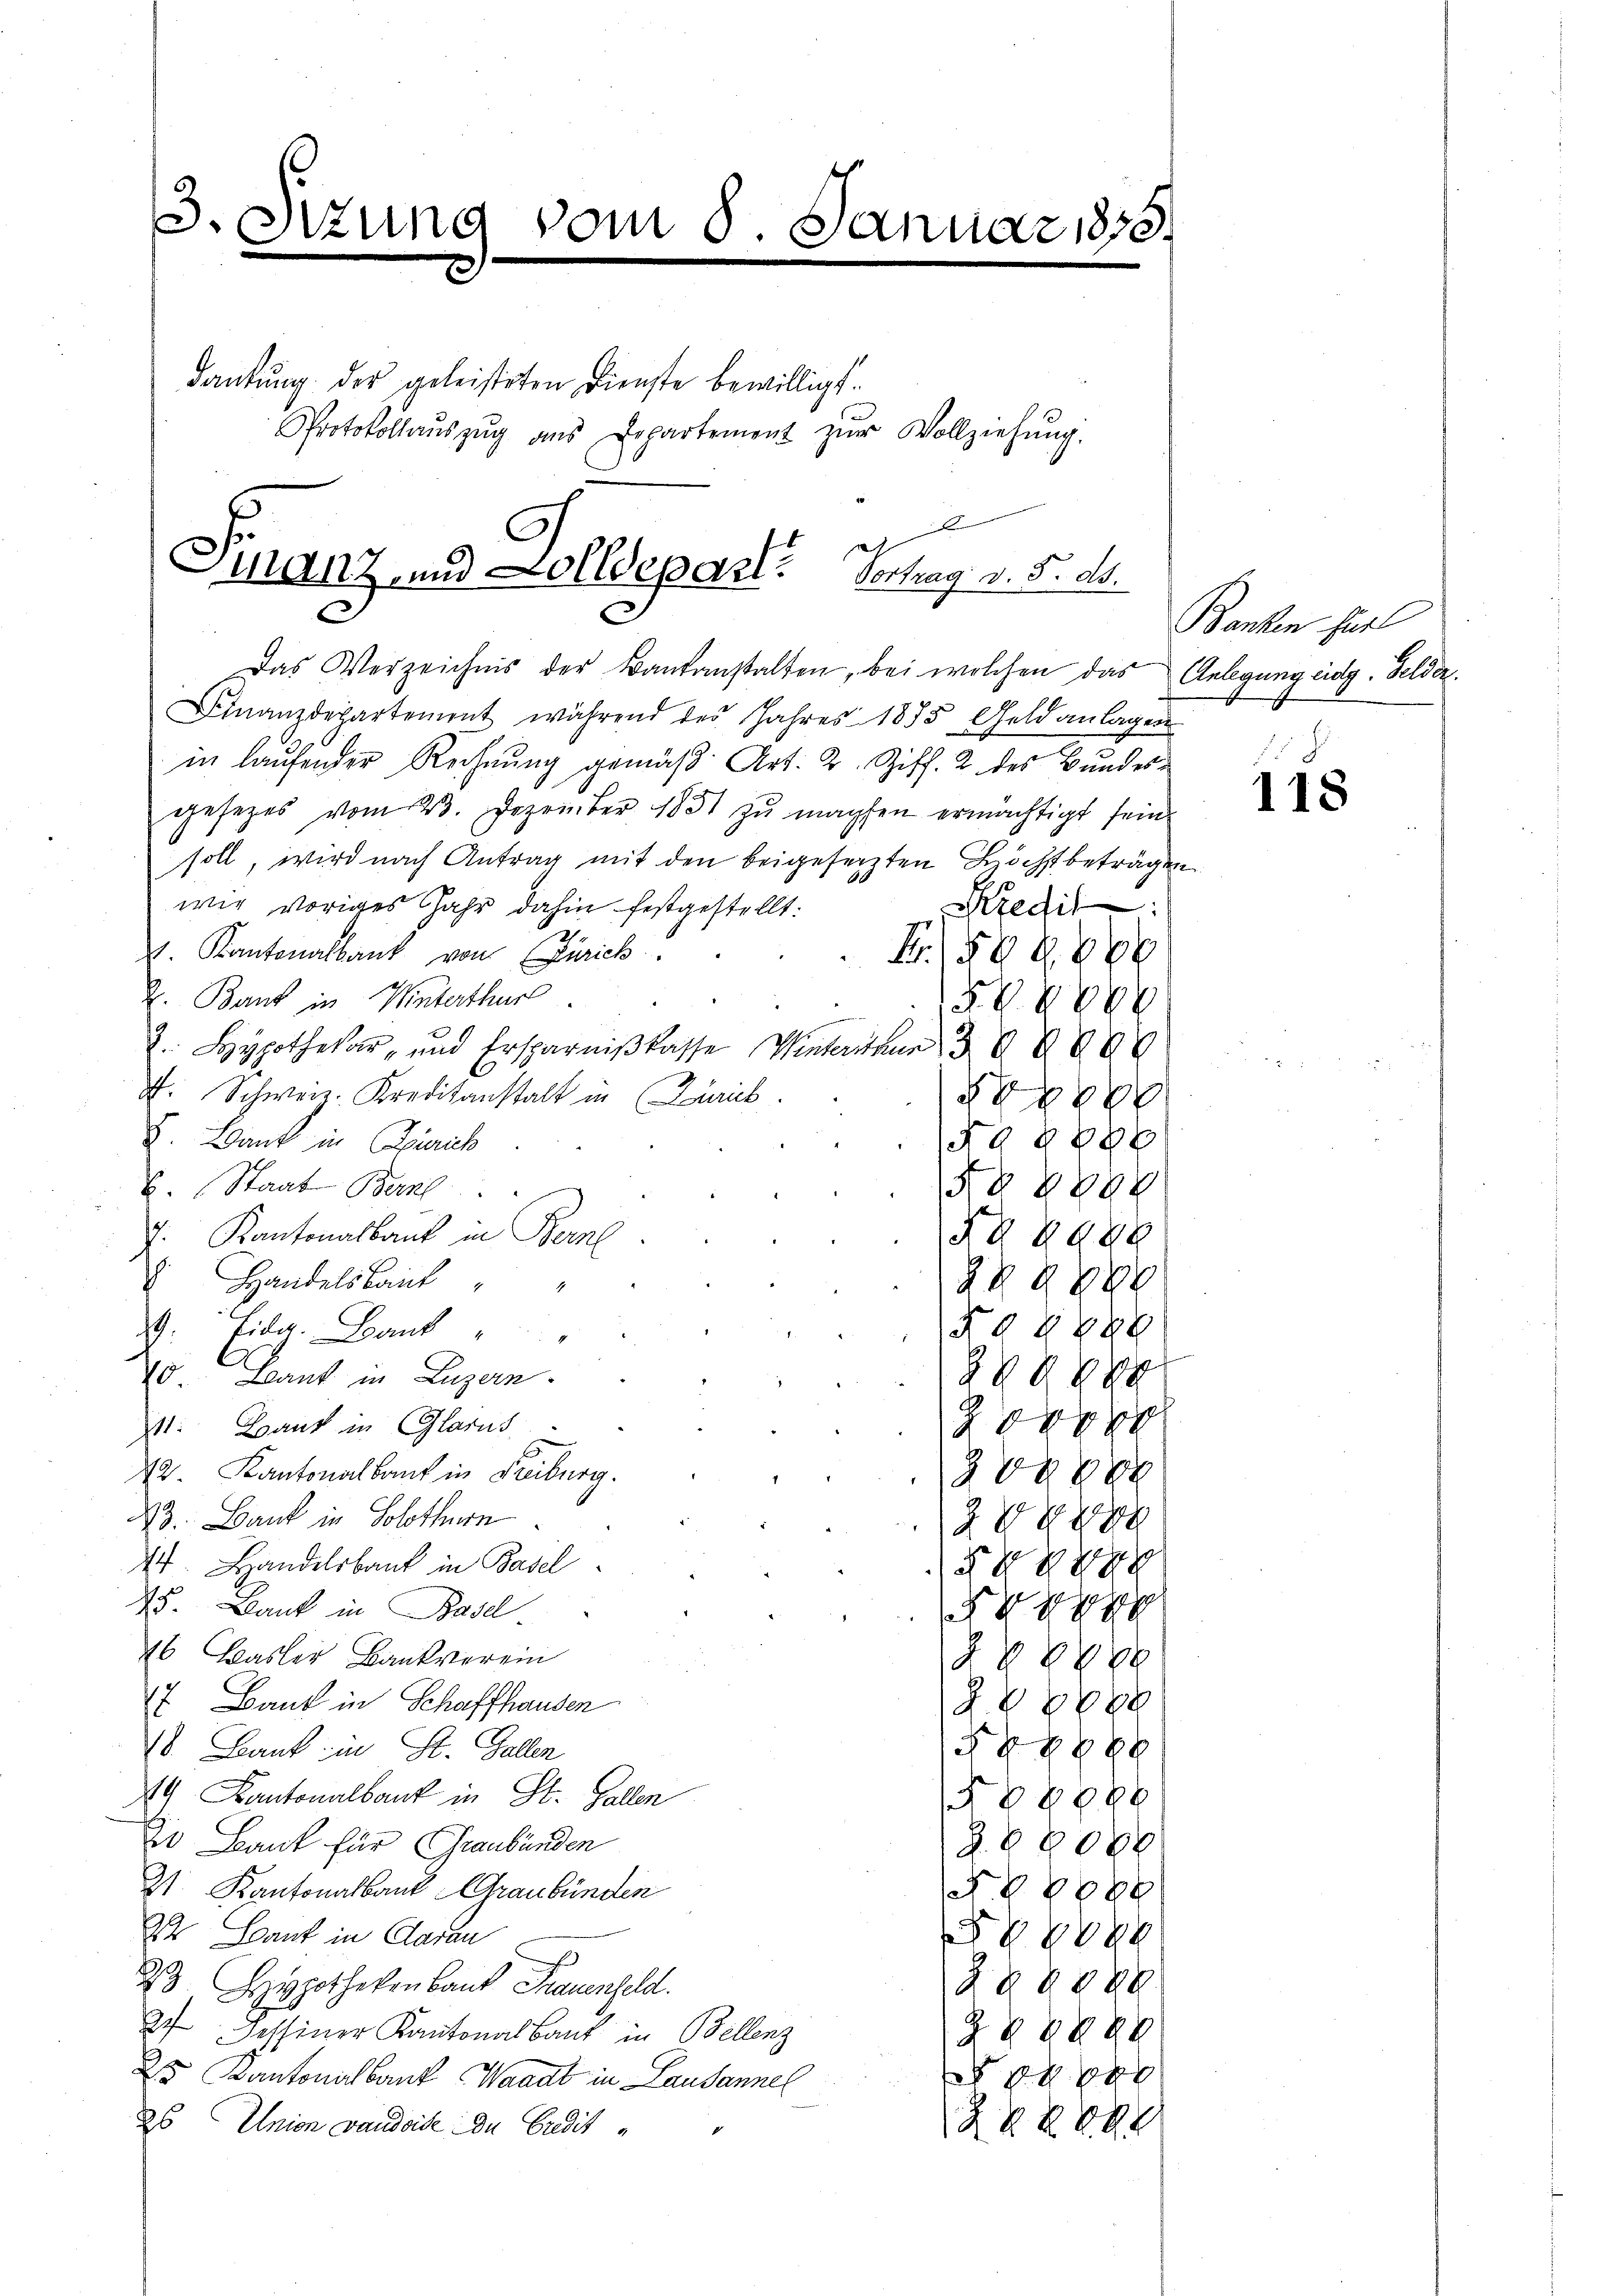 3. Sizung vom 8. Januar 1875.
dankung der geleisteten Dienste bewilligt.
Protokollauszug ans Departement zur Vollziehung.
Finanz- und Zolldepart. Vortrag v. 5. ds.
Banken für
Anlegung eidg. Gelder.
118
Das Verzeichnis der Bankanstalten, bei welchen das
Finanzdepartement während des Jahres 1875 Geldanlagen
in laufender Rechnung gemäß Art. 2. Ziff. 2 des Bundes-
gesezes vom 23. Dezember 1851 zu machen ermächtigt sein
soll, wird nach Antrag mit den beigesezten Höchstbeträgen
wie voriges Jahr dahin festgestellt:
Kredit:
1. Kantonalbank von Zürich . . . Fr. 500,000
2. Bank in Winterthur . . . 500000
3. Hypothekar- und Ersparnißkasse Winterthur 300000
4. Schweiz. Kreditanstalt in Zürich . . 500000
5. Bank in Zürich . . . 500000
6. Staat Bern . . . 500000
7. Kantonalbank in Bern . . . 500000
8. Handelsbank " " . . . 200000
9. Eidg. Bank " " . . . 500000
10. Bank in Luzern . . . 300000
11. Bank in Glarus . . . 200000
12. Kantonalbank in Freiburg . . . 300000
13. Bank in Solothurn . . . 200000
14. Handelsbank in Basel . . . 500000
15. Bank in Basel . . . 500000
16 Basler Bankverein 200000
17 Bank in Schaffhausen 200000
18. Bank in St. Gallen 500000
19 Kantonalbank in St. Gallen 500000
20 Bank für Graubünden 300000
21 Kantonalbank Graubünden 500000
22 Bank in Aarau 500000
23 Hypothekenbank Frauenfeld. 200000
24 Tessiner Kantonalbank in Bellenz 200000
25 Kantonalbank Waadt in Lausanne 500000
26 Union vaudoise du Crédit " " 200000